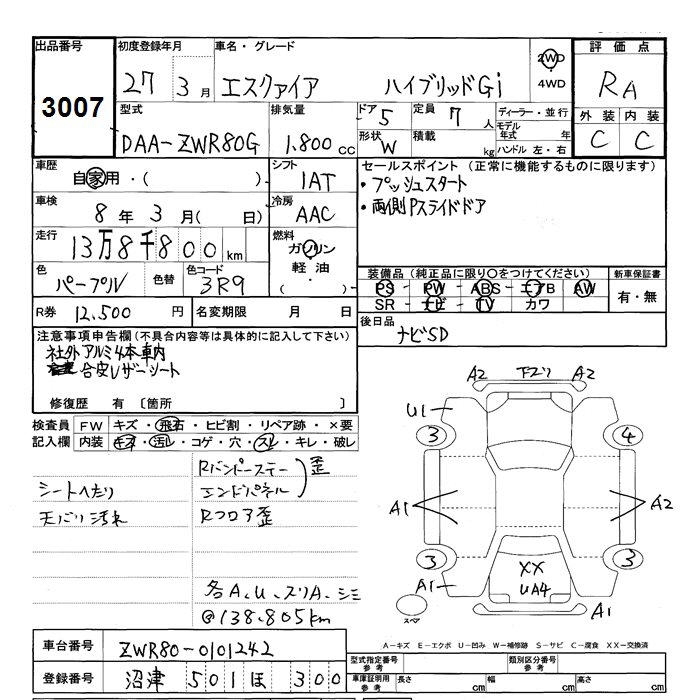 出品番号 初度登録年月 車名・グレード 評価点
3007 27年 3月 エスクァイア ハイブリッドGi 2WD・4WD RA
型式 排気量 ドア 定員 ディーラー・並行 外装 内装
DAA-ZWR80G 1.800cc 5 7人 モデル年式 年 C C
形状 W 積載 kg ハンドル 左・右
車歴 自家用・( ) シフト 1AT セールスポイント (正常に機能するものに限ります)
・プッシュスタート
車検 8年 3月( 日) 冷房 AAC ・両側Pスライドドア
走行 13万8千800km 燃料 ガソリン・軽油・( )
色 パープル 色替 色コード 3R9 装備品 (純正品に限り○をつけてください) 新車保証書
PS - PW - ABS - エアB AW 有・無
SR - ナビ - TV カワ
R券 12,500円 名変期限 月 日 後日品
ナビSD
注意事項申告欄 (不具合内容等は具体的に記入して下さい)
社外アルミ4本車内
合皮レザーシート
修復歴 有 〔箇所 〕
検査員記入欄 FW キズ・飛石・ヒビ割・リペア跡・×要
内装 キズ・汚レ・コゲ・穴・スレ・キレ・破レ
Rバンパーステー
シートへたり エンドパネル 歪
天バリ汚れ Rフロア歪
各A、U、スリA、シミ
@138.805km
A2 下スリ A2
U1
3 4
A1 A2
3 3
XX
A1 UA4
スペア A1
A-キズ E-エクボ U-凹み W-補修跡 S-サビ C-腐食 XX-交換済
車台番号 ZWR80-0101242 型式指定番号 参考 類別区分番号 参考
登録番号 沼津 501 ほ 300 車庫証明用 参考 長さ cm 幅 cm 高さ cm